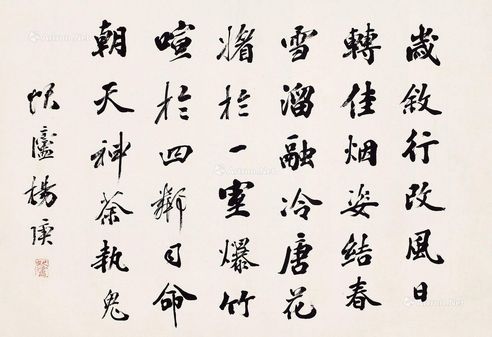 歲敘行改風日
轉佳烟姿結春
雪溜融冷唐花
於一室爆竹
喧於四鄰司命
朝天神荼執鬼
楊